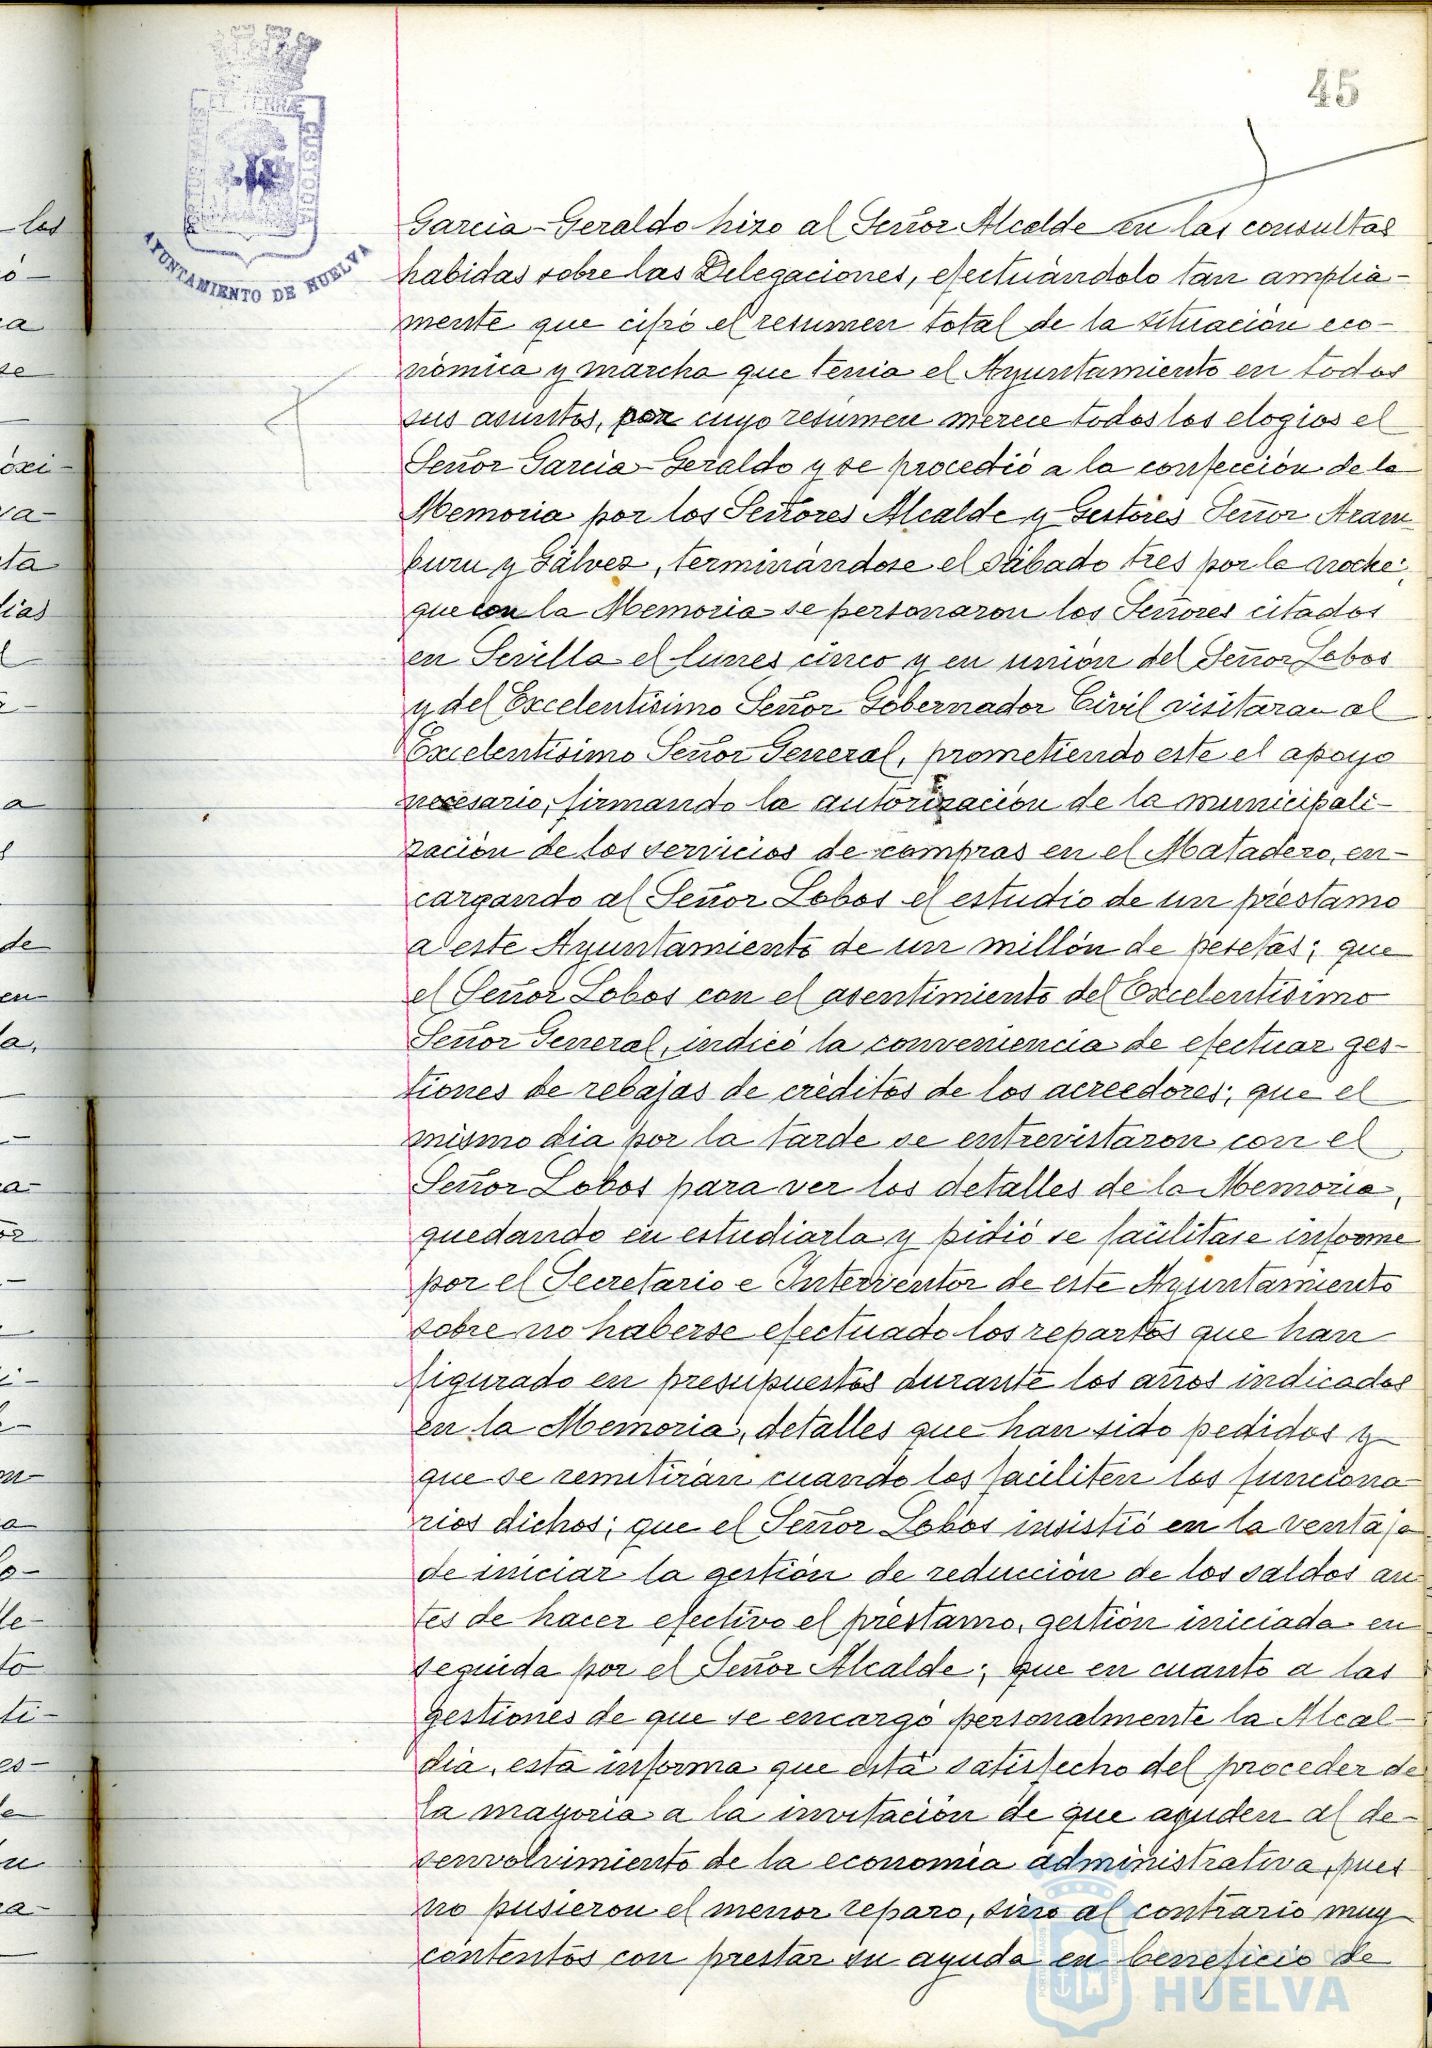 45
ET TERRÆ
CUSTODIA
AYUNTAMIENTO DE HUELVA
Garcia-Geraldo hizo al Señor Alcalde en las consultas
habidas sobre las Delegaciones, efectuándolo tan amplia-
mente que cifró el resumen total de la situación eco-
nómica y marcha que tenia el Ayuntamiento en todos
sus asuntos, por cuyo resúmen merece todos los elogios el
Señor Garcia-Geraldo y se procedió a la confección de la
Memoria por los Señores Alcalde y Gestores Señor Aram-
buru y Gálvez, terminándose el sábado tres por la noche;
que con la Memoria se personaron los Señores citados
en Sevilla el lunes cinco y en unión del Señor Lobos
y del Excelentísimo Señor Gobernador Civil visitaran al
Excelentísimo Señor General, prometiendo este el apoyo
necesario, firmando la autorización de la municipali-
zación de los servicios de compras en el Matadero, en-
cargando al Señor Lobos el estudio de un préstamo
a este Ayuntamiento de un millón de pesetas; que
el Señor Lobos con el asentimiento del Excelentísimo
Señor General, indicó la conveniencia de efectuar ges-
tiones de rebajas de créditos de los acreedores; que el
mismo dia por la tarde se entrevistaron con el
Señor Lobos para ver los detalles de la Memoria,
quedando en estudiarla y pidió se facilitase informe
por el Secretario e Interventor de este Ayuntamiento
sobre no haberse efectuado los repartos que han
figurado en presupuestos durante los años indicados
en la Memoria, detalles que han sido pedidos y
que se remitirán cuando los faciliten los funciona-
rios dichos; que el Señor Lobos insistió en la ventaja
de iniciar la gestión de reducción de los saldos an-
tes de hacer efectivo el préstamo, gestión iniciada en
seguida por el Señor Alcalde; que en cuanto a las
gestiones de que se encargó personalmente la Alcal-
dia, esta informa que está satisfecho del proceder de
la mayoria a la invitación de que ayuden al de-
senvolvimiento de la economia administrativa, pues
no pusieron el menor reparo, sino al contrario muy
contentos con prestar su ayuda en beneficio de
Ayuntamiento de
HUELVA